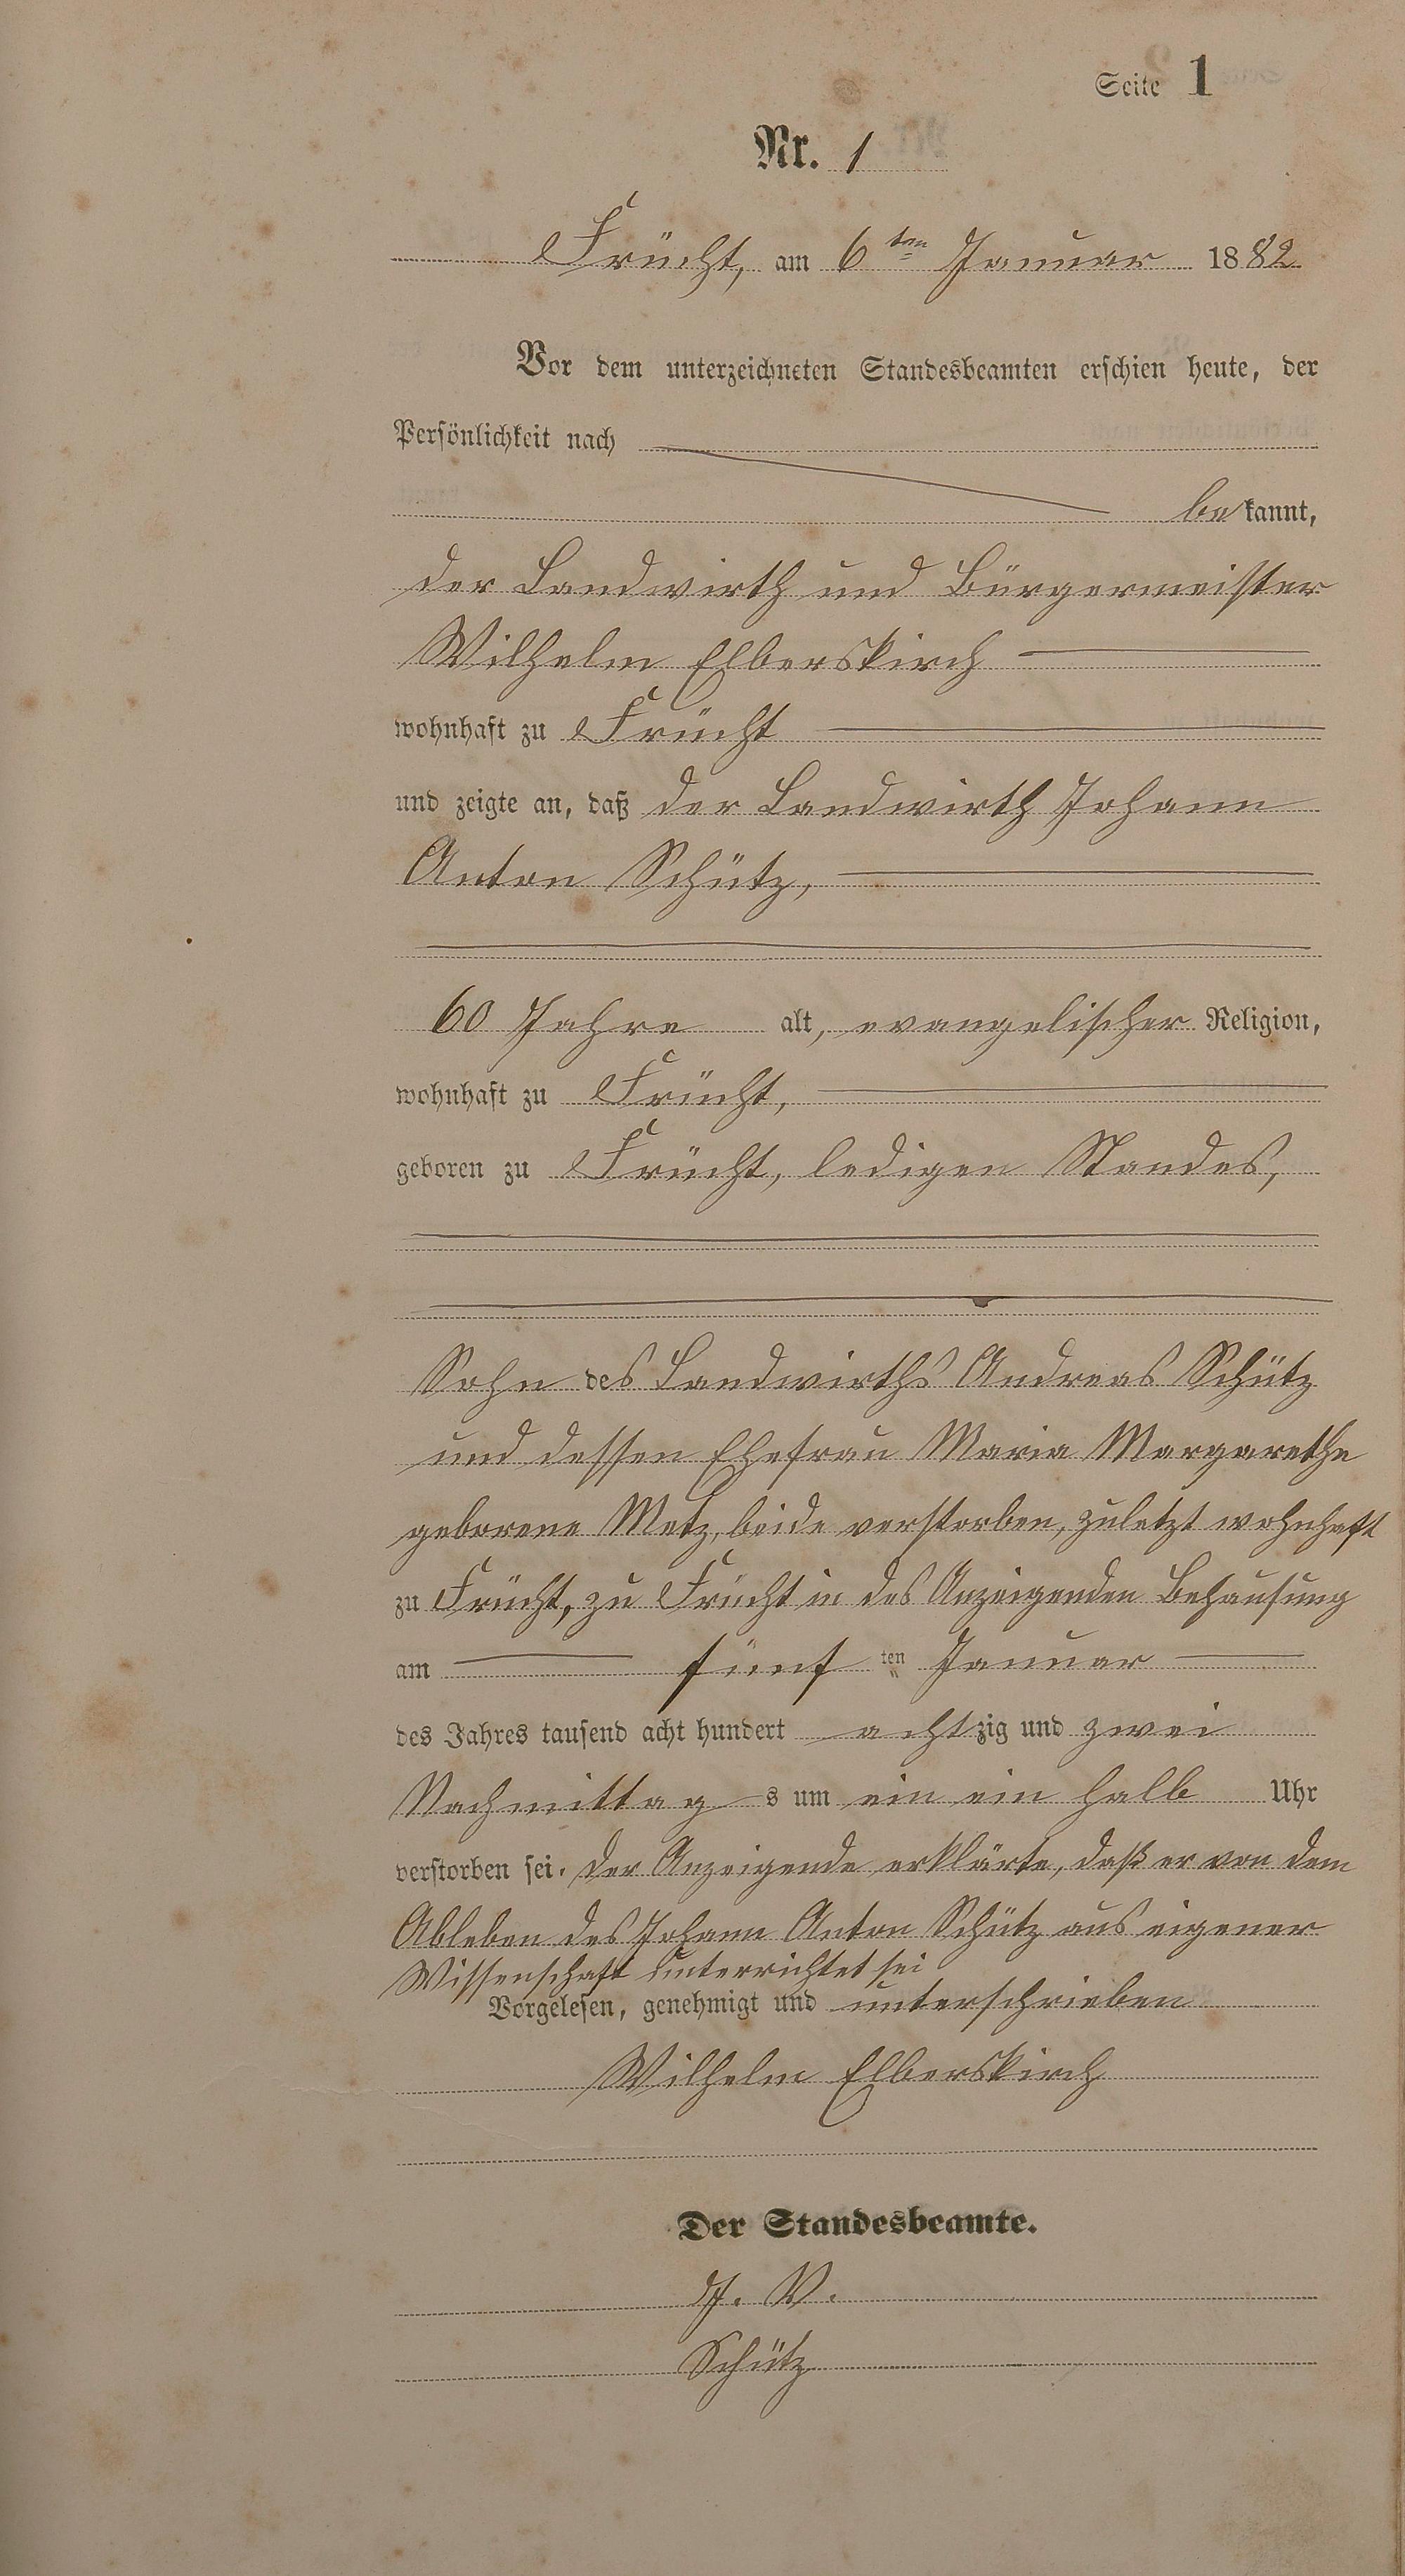 Seite 1
Nr. 1
Frücht, am 6ten Januar 1882
Vor dem unterzeichneten Standesbeamten erschien heute, der
Persönlichkeit nach
bekannt,
der Landwirth und Bürgermeister
Wilhelm Elberskirch
wohnhaft zu Frücht
und zeigte an, daß der Landwirth Johann
Anton Schütz,
60 Jahre alt, evangelischer Religion,
wohnhaft zu Frücht,
geboren zu Frücht, ledigen Standes,
Sohn des Landwirths Andreas Schütz
und dessen Ehefrau Maria Margarethe
geborene Metz, beide verstorben, zuletzt wohnhaft
zu Frücht, zu Frücht in des Anzeigenden Behausung
am fünf ten Januar
des Jahres tausend acht hundert achtzig und zwei
Nachmittags um ein ein halb Uhr
verstorben sei. Der Anzeigende erklärte, daß er von dem
Ableben des Johann Anton Schütz aus eigener
Wissenschaft unterrichtet sei
Vorgelesen, genehmigt und unterschrieben
Wilhelm Elberskirch
Der Standesbeamte.
J. V.
Schütz